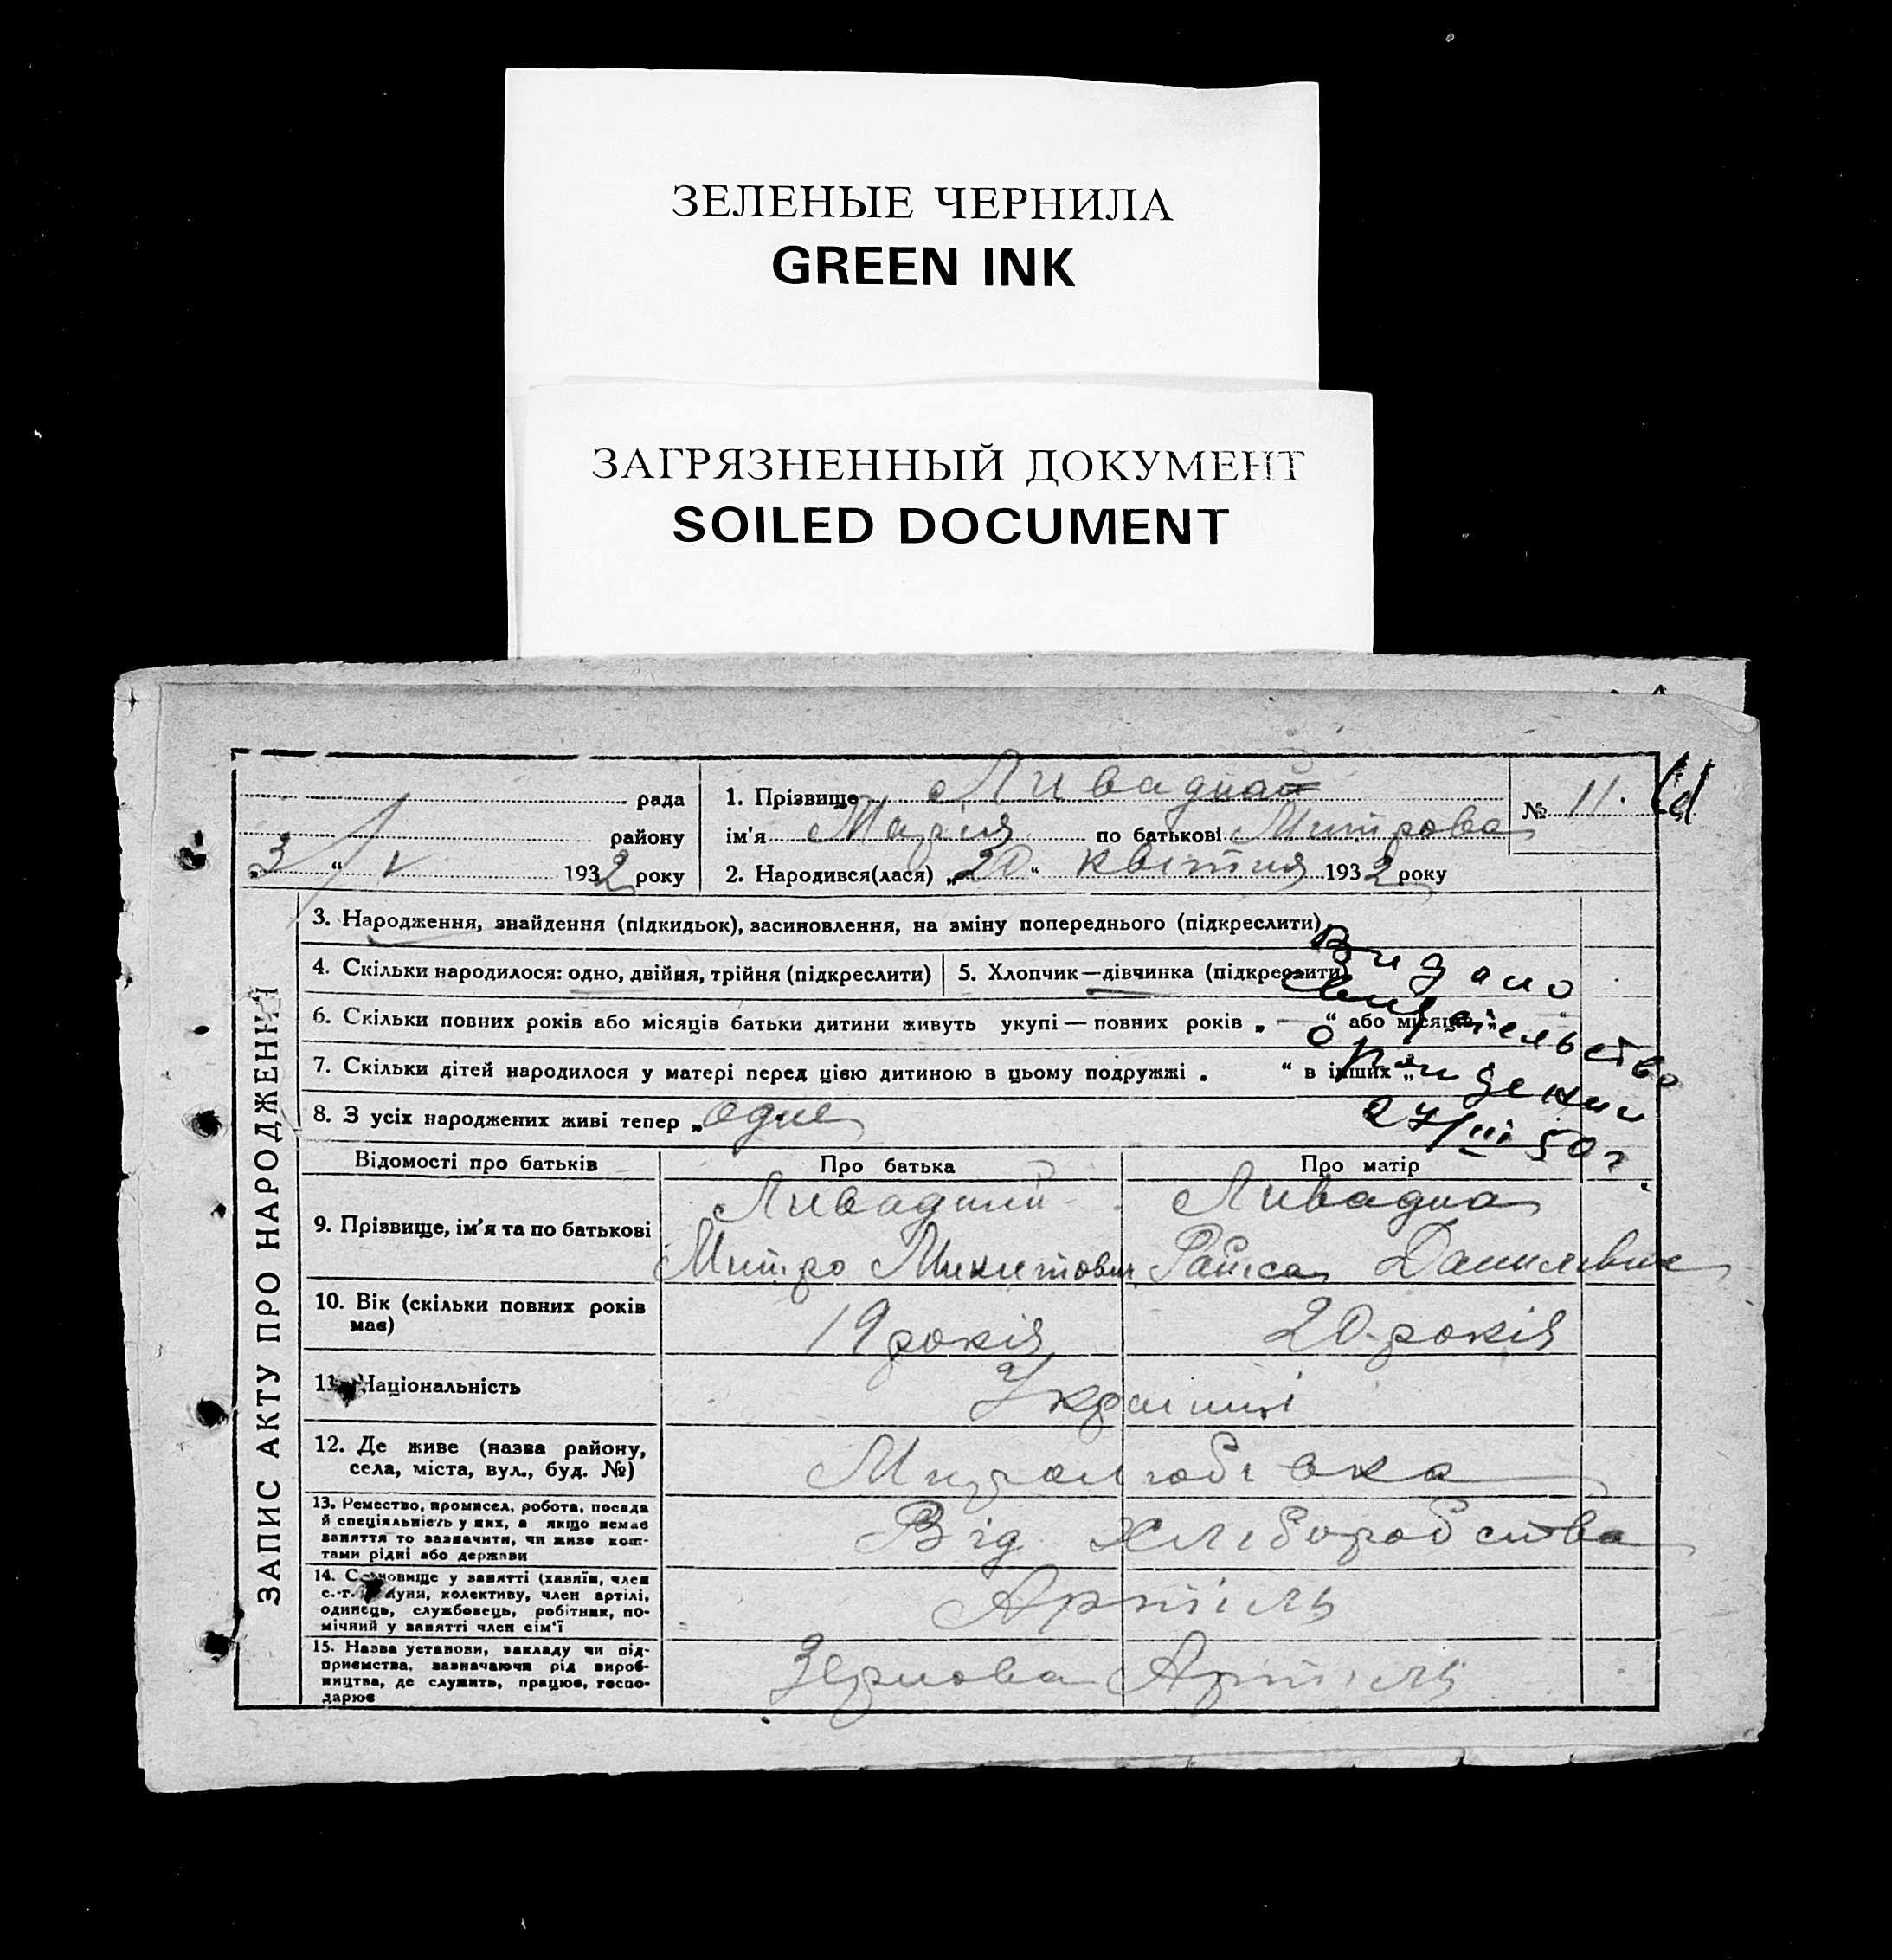 ЗЕЛЕНЫЕ ЧЕРНИЛА
GREEN INK
ЗАГРЯЗНЕННЫЙ ДОКУМЕНТ
SOILED DOCUMENT
ЗАПИС АКТУ ПРО НАРОДЖЕННЯ
рада
району
„3“ V 1932 року
1. Прізвище Ливадна
ім'я Марія по батькові Митрова
2. Народився(лася) „20“ квітня 1932 року
№ 11.
3. Народження, знайдення (підкидьок), засиновлення, на зміну попереднього (підкреслити)
4. Скільки народилося: одно, двійня, трійня (підкреслити)
5. Хлопчик—дівчинка (підкреслити)
6. Скільки повних років або місяців батьки дитини живуть укупі — повних років „ — “ або місяців „
7. Скільки дітей народилося у матері перед цією дитиною в цьому подружжі „ “ в інших „
8. З усіх народжених живі тепер „ одне
Видано
свидетельство
о рождении
27/III 50 г
Відомості про батьків
Про батька
Про матір
9. Прізвище, ім'я та по батькові
Ливадний
Митро Микитович
Ливадна
Раїса Данилівна
10. Вік (скільки повних років має)
19 років
20 років
11. Національність
Українці
12. Де живе (назва району,
села, міста, вул., буд. №)
Миролюбівка
13. Ремество, промисел, робота, посада
й спеціяльність у них, а якщо немає
заняття то зазначити, чи живе кош-
тами рідні або держави
Від хліборобства
14. Становище у занятті (хазяїн, член
с.-г. комуни, колективу, член артілі,
одинець, службовець, робітник, по-
мічний у занятті член сім'ї
Артіль
15. Назва установи, закладу чи під-
приємства, зазначаючи рід вироб-
ництва, де служить, працює, госпо-
дарює
Зернова Артіль